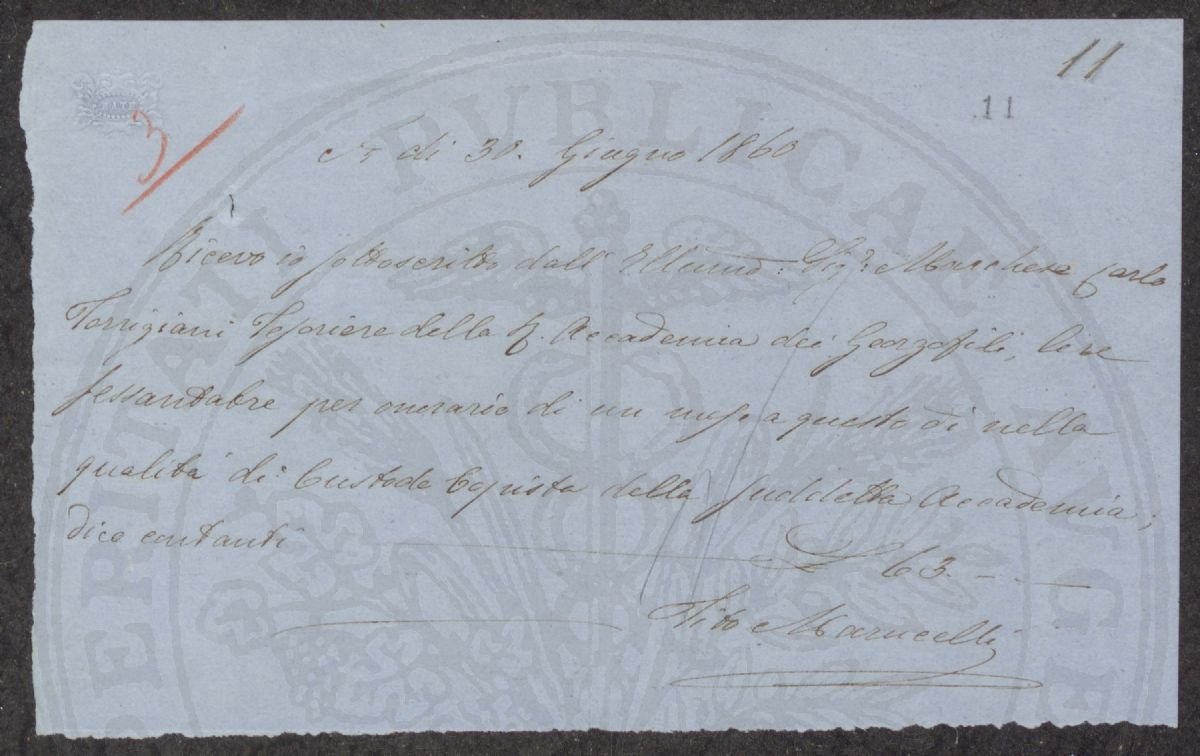 11
.11
3
A dì 30. Giugno 1860
Ricevo io sottoscritto dall' Illumo: Sigr: Marchese Carlo
Torrigiani Tesoriere della R. Accademia dei Georgofili, lire
sessantatre per onorario di un mese a questo dì nella
qualità di Custode Copista della suddetta Accademia;
dico contanti L 63. - -
Tito Marucelli
PERITATI PUBLICAE AUGE